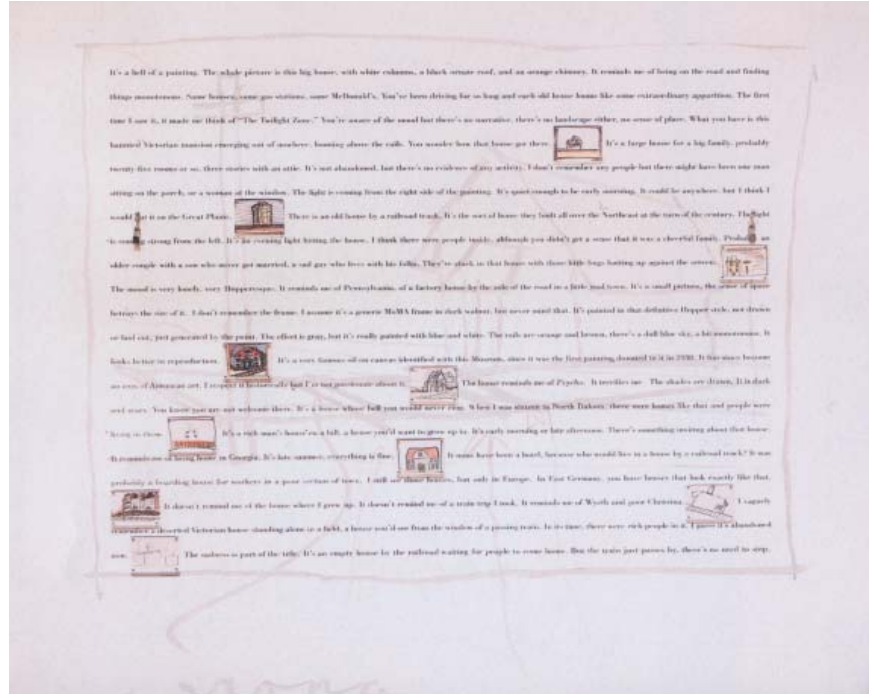 It's a hell of a painting. The whole picture is this big house, with white columns, a black ornate roof, and an orange chimney. It reminds me of being on the road and finding
things monotonous. Same houses, same gas stations, same McDonald's. You've been driving for so long and each old house looms like some extraordinary apparition. The first
time I saw it, it made me think of "The Twilight Zone." You're aware of the mood but there's no narrative, there's no landscape either, no sense of place. What you have is this
haunted Victorian mansion emerging out of nowhere, looming above the rails. You wonder how that house got there. It's a large house for a big family, probably
twenty-five rooms or so, three stories with an attic. It's not abandoned, but there's no evidence of any activity. I don't remember any people but there might have been one man
sitting on the porch, or a woman at the window. The light is coming from the right side of the painting. It's quiet enough to be early morning. It could be anywhere, but I think I
would put it on the Great Plains. There is an old house by a railroad track. It's the sort of house they built all over the Northeast at the turn of the century. The light
is coming strong from the left. It's an evening light hitting the house. I think there were people inside, although you didn't get a sense that it was a cheerful family. Probably an
older couple with a son who never got married, a sad guy who lives with his folks. They're stuck in that house with those little bugs batting up against the screen.
The mood is very lonely, very Hopperesque. It reminds me of Pennsylvania, of a factory house by the side of the road in a little mud town. It's a small picture, the sense of space
betrays the size of it. I don't remember the frame. I assume it's a generic MoMA frame in dark walnut, but never mind that. It's painted in that definitive Hopper style, not drawn
or laid out, just generated by the paint. The effect is gray, but it's really painted with blue and white. The rails are orange and brown, there's a dull blue sky, a bit monotonous. It
looks better in reproduction. It's a very famous oil on canvas identified with this Museum, since it was the first painting donated to it in 1930. It has since become
an icon of American art. I respect it historically but I'm not passionate about it. The house reminds me of Psycho. It terrifies me. The shades are drawn. It is dark
and scary. You know you are not welcome there. It's a house whose bell you would never ring. When I was sixteen in North Dakota, there were homes like that and people were
living in them. It's a rich man's house on a hill, a house you'd want to grow up to. It's early morning or late afternoon. There's something inviting about that house.
It reminds me of being home in Georgia. It's late summer, everything is fine. It must have been a hotel, because who would live in a house by a railroad track? It was
probably a boarding house for workers in a poor section of town. I still see those houses, but only in Europe. In East Germany, you have houses that look exactly like that.
It doesn't remind me of the house where I grew up. It doesn't remind me of a train trip I took. It reminds me of Wyeth and poor Christina. I vaguely
remember a deserted Victorian house standing alone in a field, a house you'd see from the window of a passing train. In its time, there were rich people in it. I guess it's abandoned
now. The sadness is part of the title. It's an empty house by the railroad waiting for people to come home. But the train just passes by, there's no need to stop.